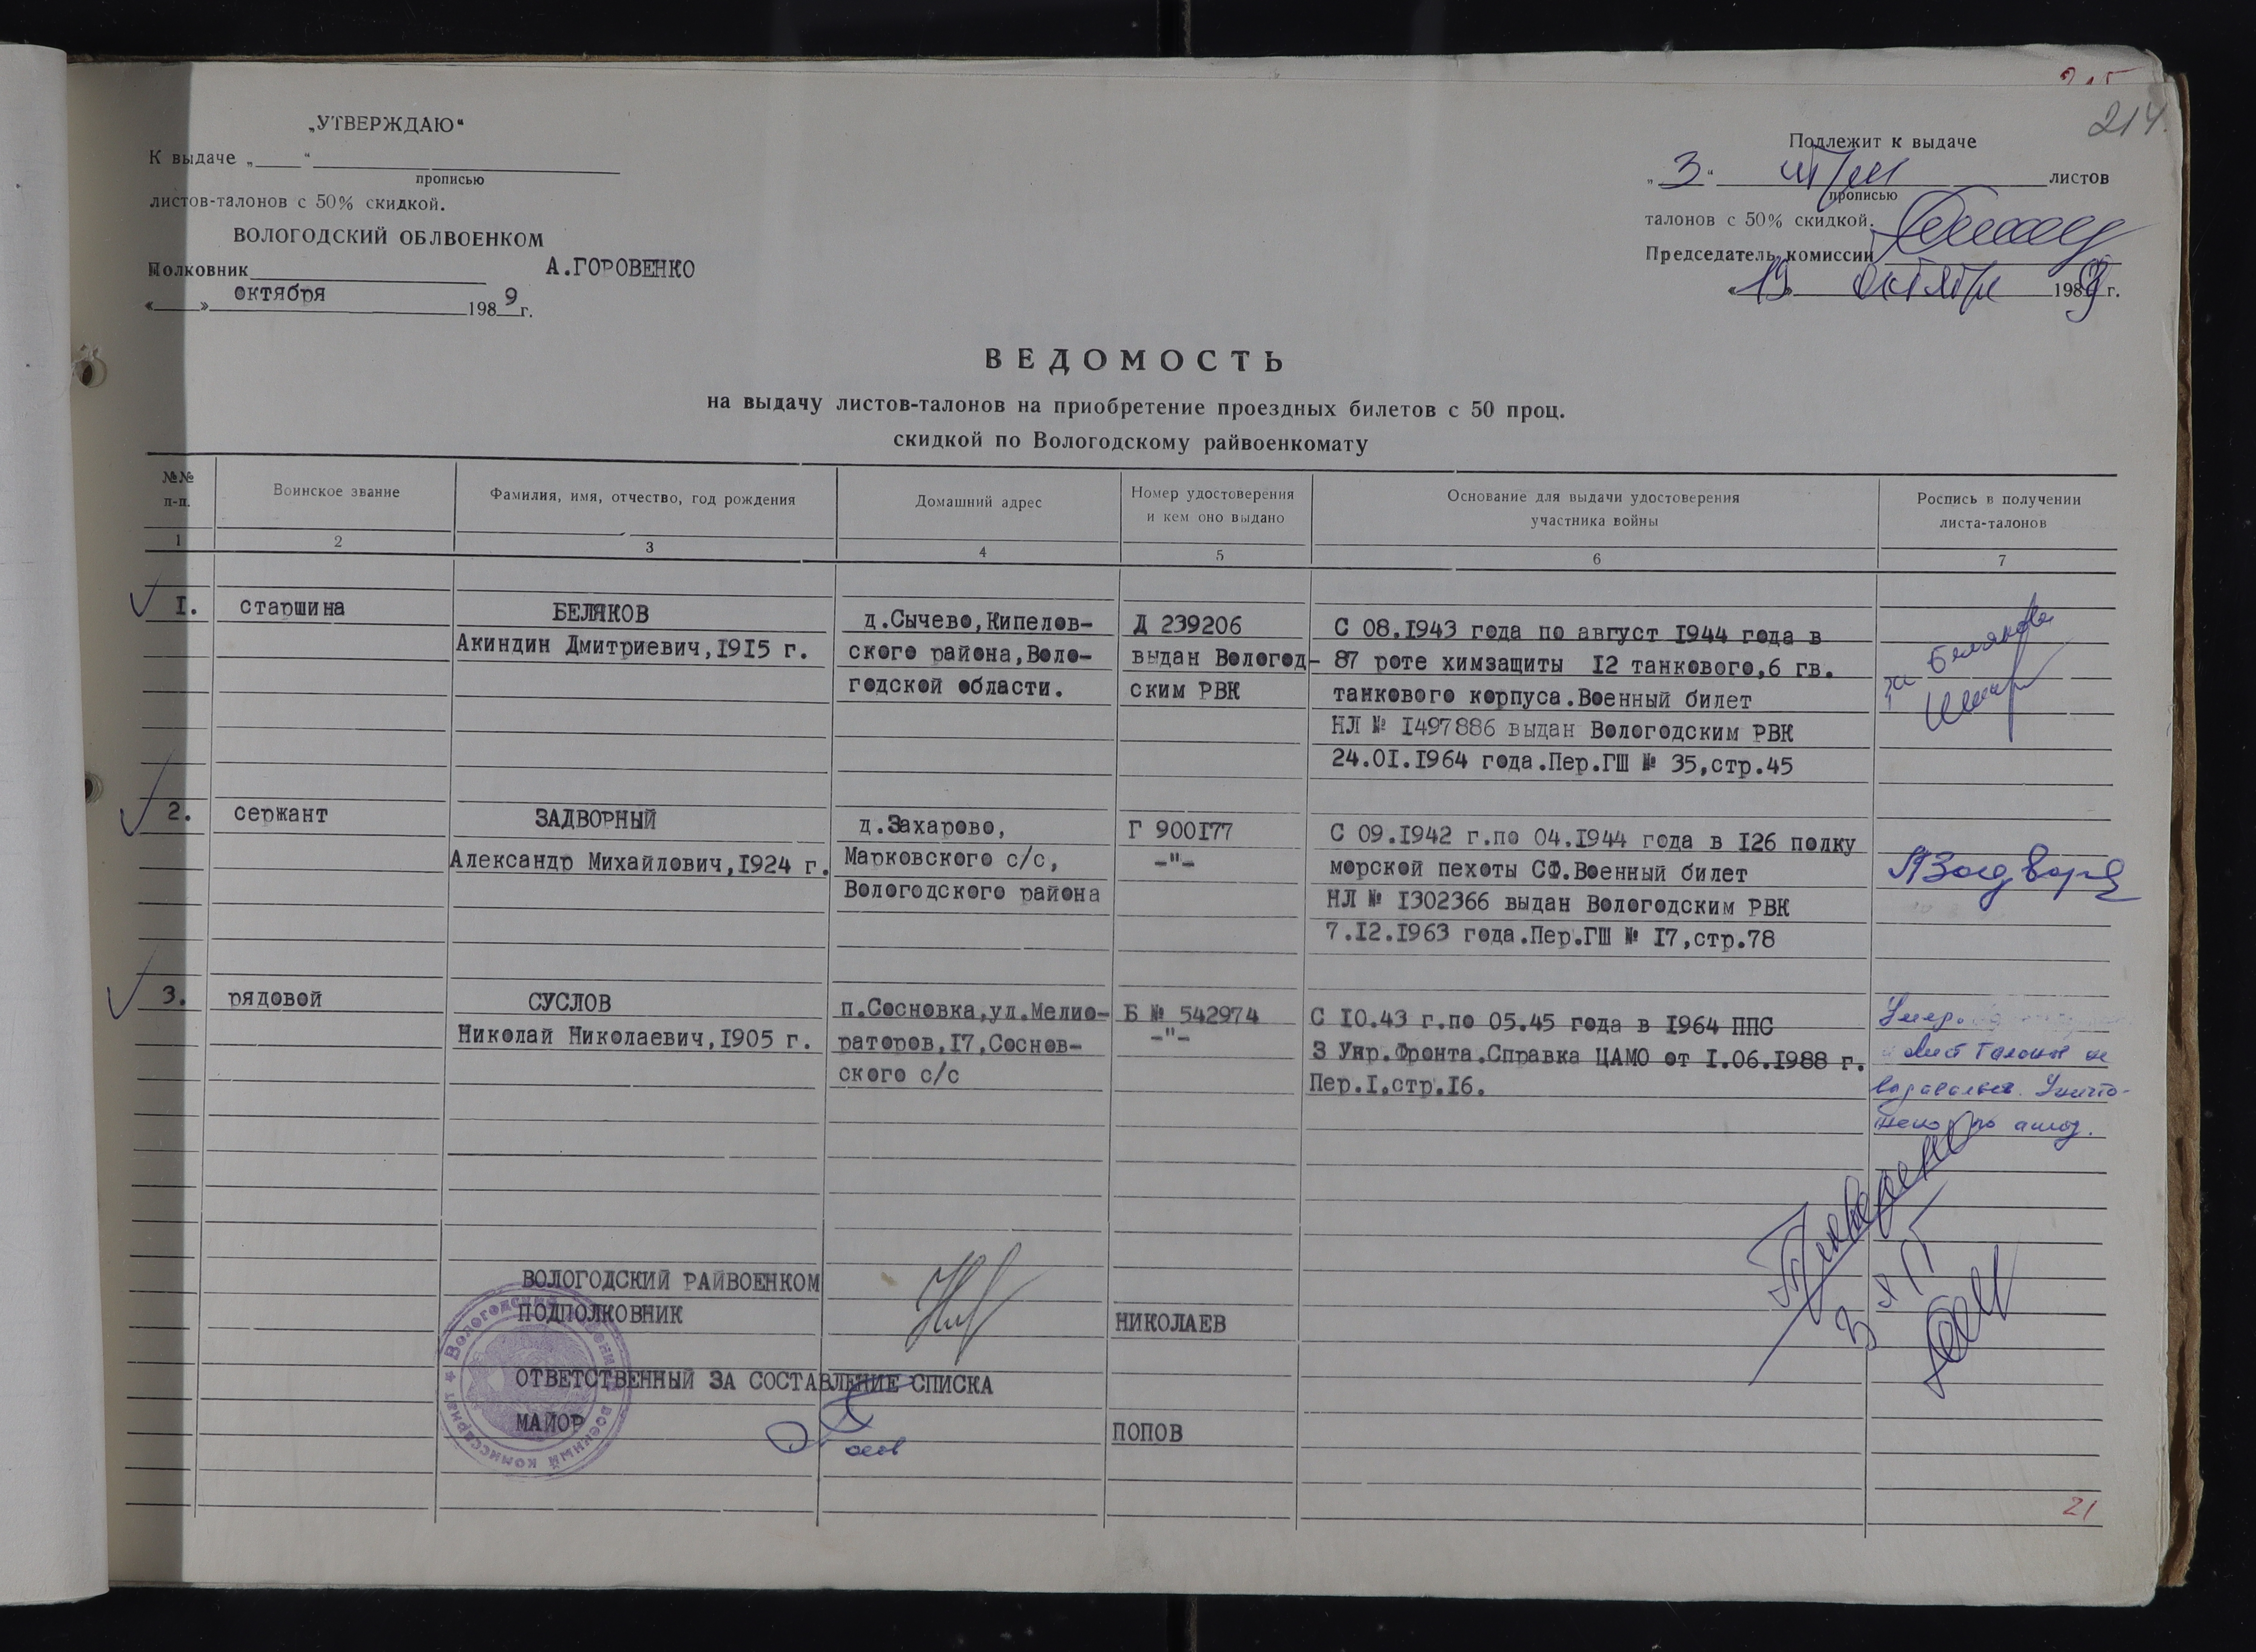 214.
„УТВЕРЖДАЮ“
К выдаче „ “
прописью
листов-талонов с 50% скидкой.
ВОЛОГОДСКИЙ ОБЛВОЕНКОМ
Полковник А.ГОРОВЕНКО
« » октября 1989 г.
Подлежит к выдаче
„3“ три листов
прописью
талонов с 50% скидкой.
Председатель комиссии
«19» октября 1989 г.
ВЕДОМОСТЬ
на выдачу листов-талонов на приобретение проездных билетов с 50 проц.
скидкой по Вологодскому райвоенкомату
№№ п-п.
Воинское звание
Фамилия, имя, отчество, год рождения
Домашний адрес
Номер удостоверения
и кем оно выдано
Основание для выдачи удостоверения
участника войны
Роспись в получении
листа-талонов
1 2 3 4 5 6 7
1. старшина
БЕЛЯКОВ
Акиндин Дмитриевич,1915 г.
д.Сычево,Кипелов-
ского района,Воло-
годской области.
Д 239206
выдан Вологод-
ским РВК
С 08.1943 года по август 1944 года в
87 роте химзащиты 12 танкового,6 гв.
танкового корпуса.Военный билет
НЛ № 1497886 выдан Вологодским РВК
24.01.1964 года.Пер.ГШ № 35,стр.45
за Белякова
2. сержант
ЗАДВОРНЫЙ
Александр Михайлович,1924 г.
д.Захарово,
Марковского с/с,
Вологодского района
Г 900177
-"-
С 09.1942 г.по 04.1944 года в 126 полку
морской пехоты СФ.Военный билет
НЛ № 1302366 выдан Вологодским РВК
7.12.1963 года.Пер.ГШ № 17,стр.78
АЗадворн
3. рядовой
СУСЛОВ
Николай Николаевич,1905 г.
п.Сосновка,ул.Мелио-
раторов,17,Соснов-
ского с/с
Б № 542974
-"-
С 10.43 г.по 05.45 года в 1964 ППС
3 Укр.Фронта.Справка ЦАМО от 1.06.1988 г.
Пер.1,стр.16.
Умер.
Лист талонов не
выдавался. Уничто-
жено по акту.
ВОЛОГОДСКИЙ РАЙВОЕНКОМ
ПОДПОЛКОВНИК НИКОЛАЕВ
ОТВЕТСТВЕННЫЙ ЗА СОСТАВЛЕНИЕ СПИСКА
МАЙОР ПОПОВ
Вологодский районный военный комиссариат
21